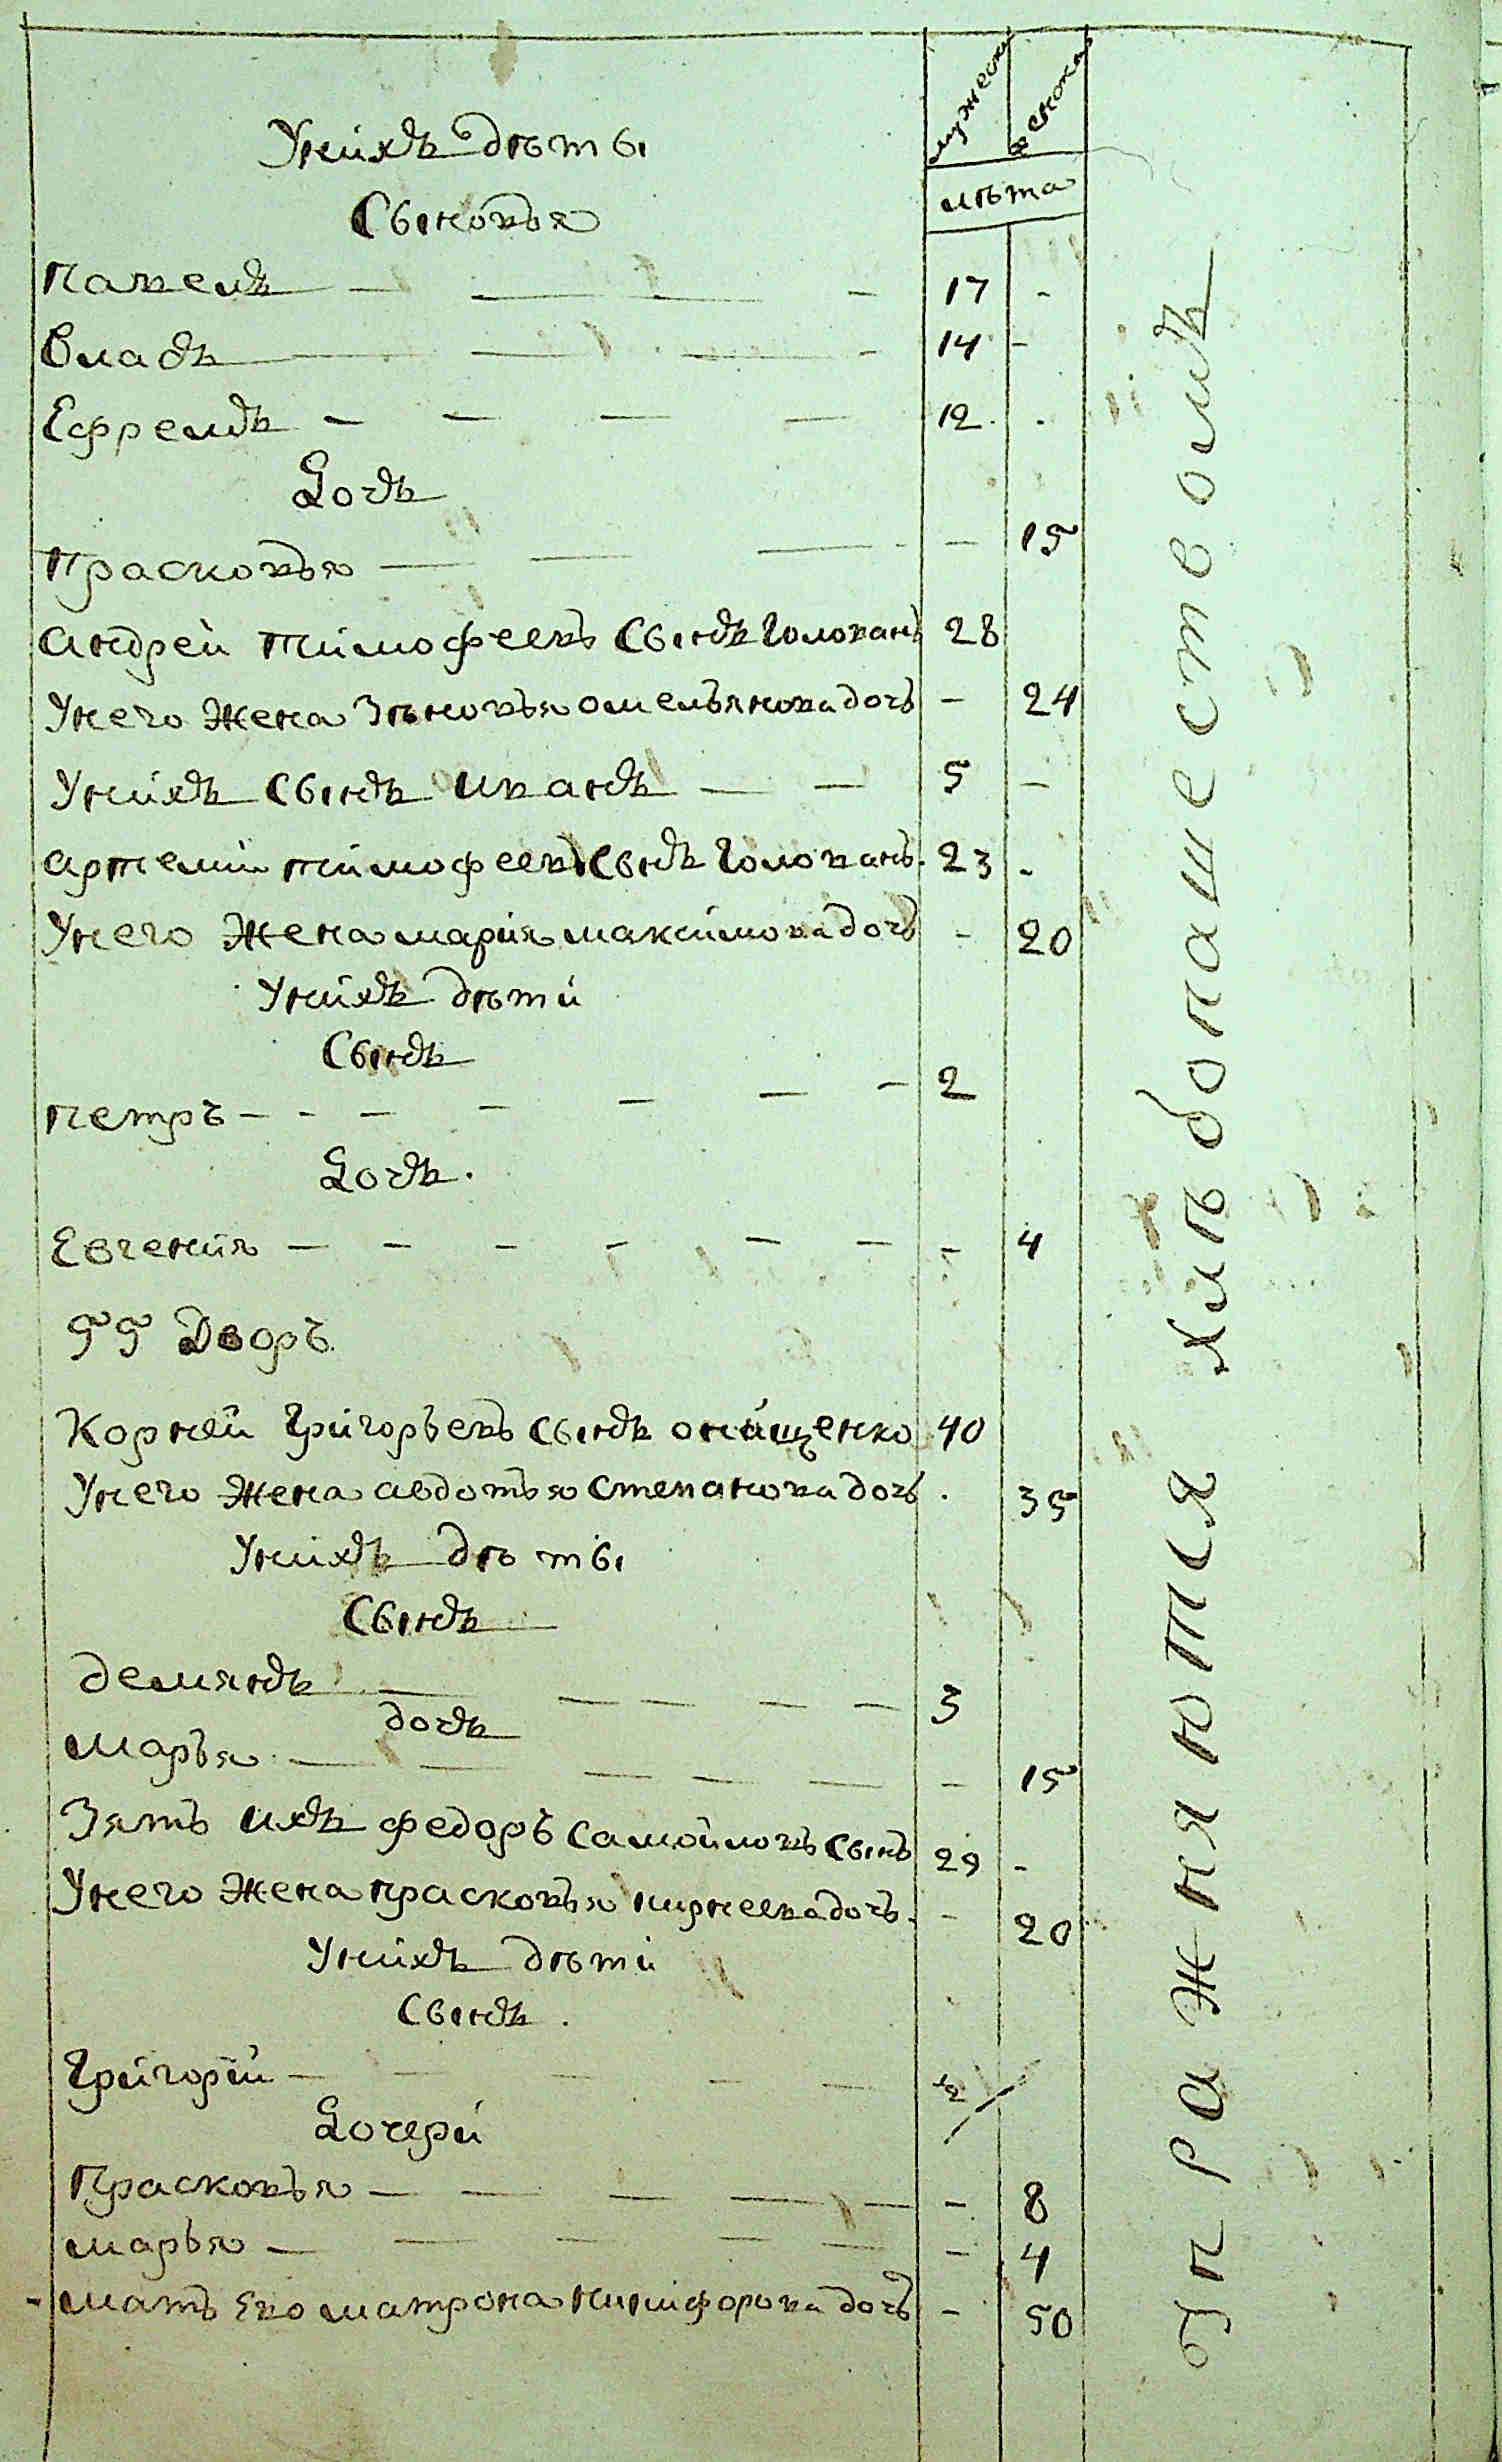 мужеска женска
лѣта
Унихъ дѣты
Сыновья
Павелъ — — — — 17 -
Владъ — — — — 14 -
Ефремъ — — — — 12 .
Дочъ
Прасковья — — — — 15
Андрей тимофеевъ Сынъ Голованъ 28
Унего жена Зѣновья омельянова дочъ — 24
Унихъ Сынъ иванъ — — 5 —
Артемій тимофеевъ Сынъ Голованъ 23 -
Унего жена марія максимова дочъ - 20
Унихъ дѣти
Сынъ
Петръ — - — — — — — 2
Дочъ.
Евгенія — — — — — — - 4
55 Дворъ
Корней Григорьевъ Сынъ онищенко 40
Унего жена авдотья Степанова дочъ . 35
Унихъ дѣты
Сынъ
Демянъ — — — — — 3
дочъ
Марья — — — — — - 15
Зять ихъ федоръ Самойловъ Сынъ 29 -
Унего жена прасковья кирнеева дочъ. - 20
Унихъ дѣти
Сынъ .
Григорій — — — — — ½
Дочери
Прасковья — — — — — - 8
марья — — — — — - 4
мать Ево матрона никифорова дочъ - 50
упражняются хлѣбопашествомъ